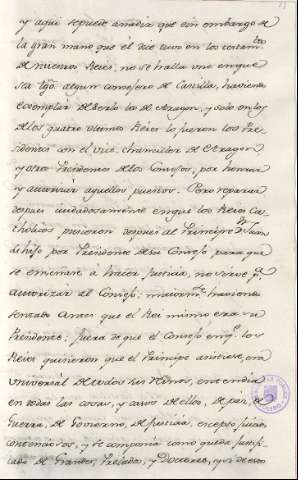 y aqui se puede añadir que sin embargo de
la gran mano que el dice tuvo en los testam.tos
de nuestros Reies, no se halla uno en que
sea tgo. algun consejero de Castilla, haviendo
exemplar de serlo los de Aragon, y solo en los
de los quatro ultimos Reies lo fueron los Pre-
sidentes con el Vice-chanciller de Aragon
y otros Presidentes de los Consejos, por honrrar
y autorizar aquellos puestos. Pero reparar
despues cuidadosamente en que los Reies Ca-
tholicos pusieron despues al Principe D.n Juan
su hijo por Presidente de su Consejo para que
se enseñase a hacer justicia, no sirve p.a
autorizar al Consejo; maiorm.te haviendo
sentado antes que el Rei mismo era su
Presidente; fuera de que el Consejo en q.e los
Reies quisieron que el Principe asistiese, era
universal de todos sus Reinos, entendia
en todas las cosas, y casos de ellos, de paz, de
Guerra, de Govierno, de justicia, excepto juicios
contenciosos, y se componia como queda justifi-
cado de Grandes, Prelados, y Doctores, y si de esto